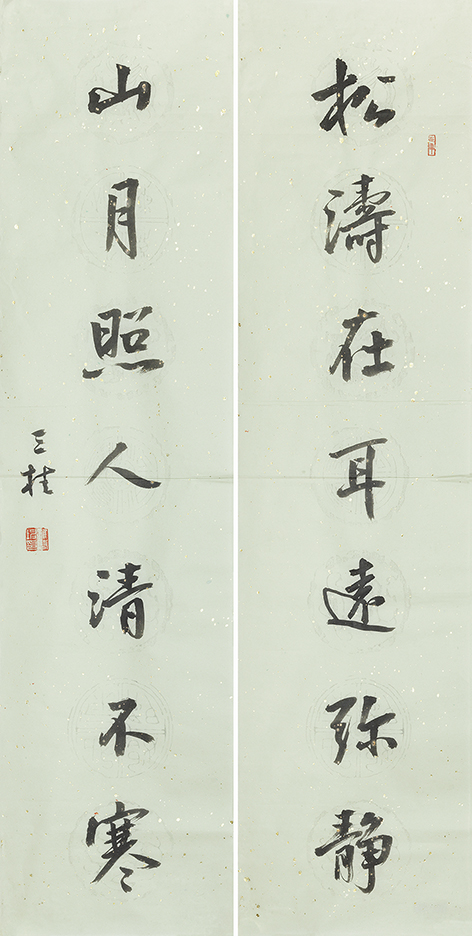 松濤在耳遠弥静
山月照人清不寒
三桂